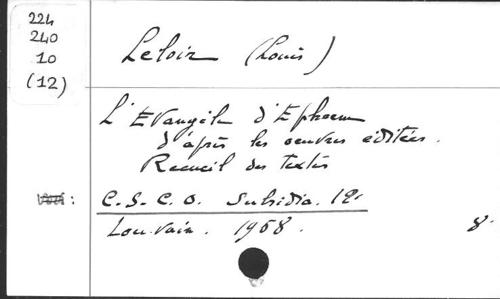 224
240
10
(12)
Leloir (Louis)
L'Evangile d'Ephrem
d'après les oeuvres éditées.
Recueil des textes
C.S.C.O. Subsidia. 12.
Louvain. 1958. 8°